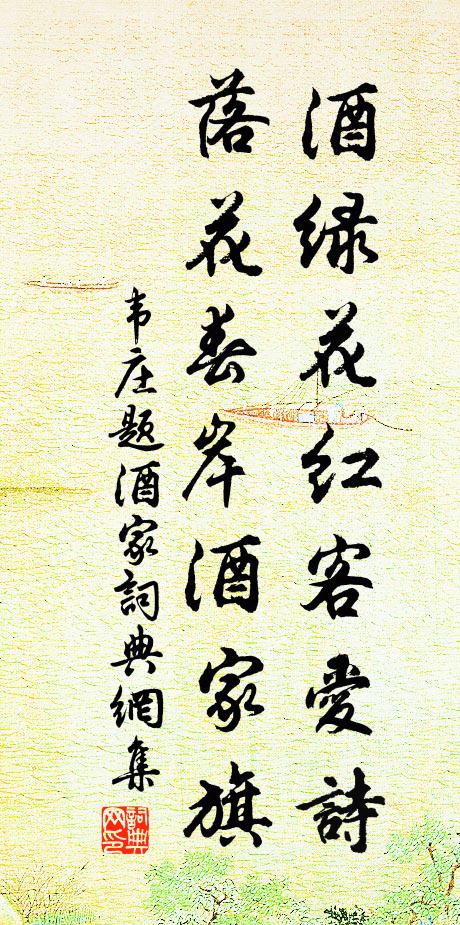 酒绿花红客爱詩
落花春岸酒家旗
韦庄题酒家詞典網集
詞典网印